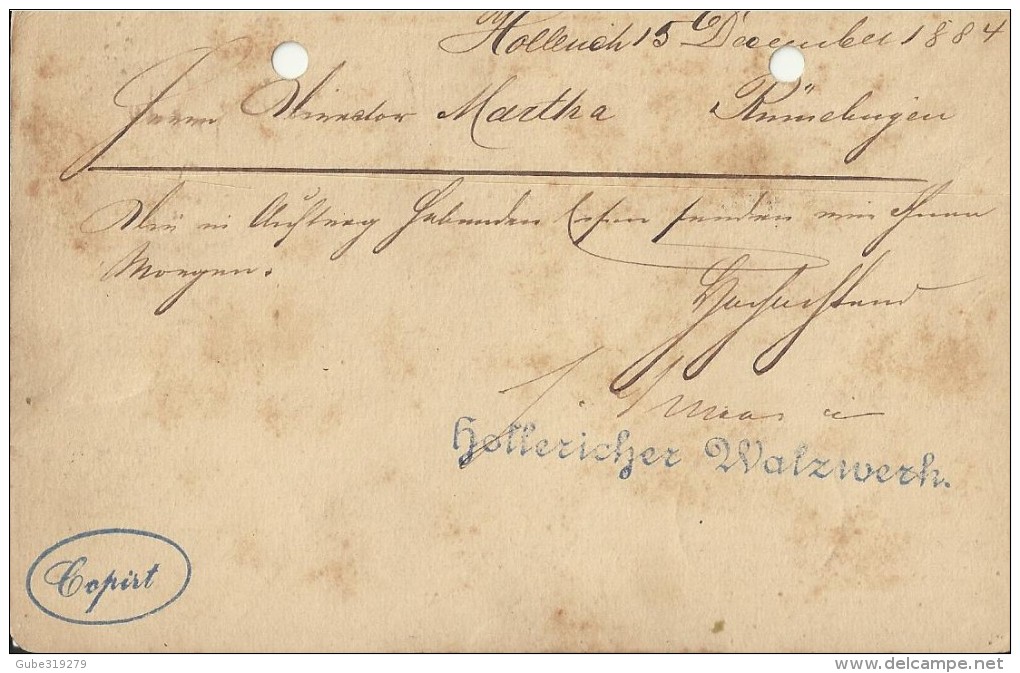 Hollerich 15 December 1884
Herrn Director Martha Rümelingen
Die in Auftrag habenden senden wir Ihnen
Morgen.
Hochachtend
Hollericher Walzwerk.
Copirt
Gube319279
delcampe.net